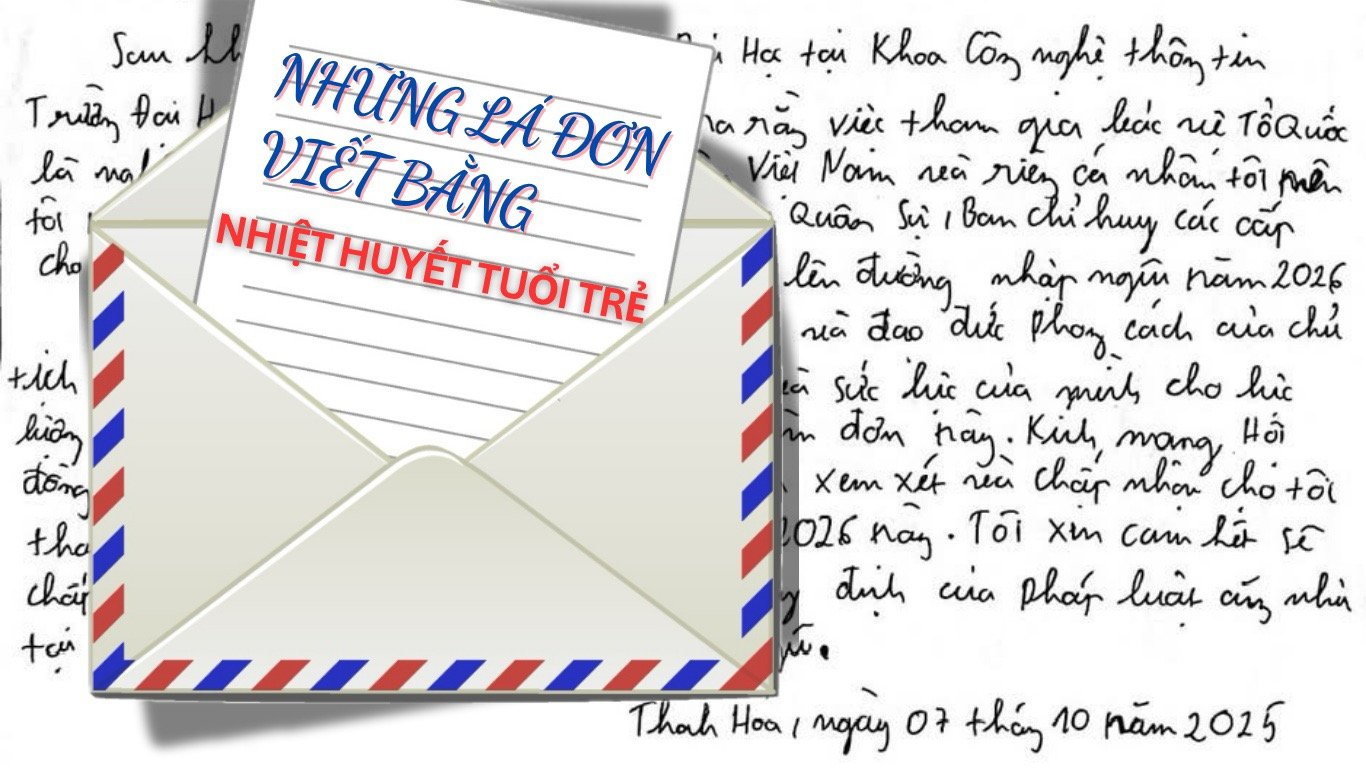 NHỮNG LÁ ĐƠN
VIẾT BẰNG
NHIỆT HUYẾT TUỔI TRẺ
Sau Học tại Khoa Công nghệ thông tin
Trường Đại rằng việc tham gia bảo vệ Tổ Quốc
là Việt Nam và riêng cá nhân tôi nên
tôi Quân sự, Ban chỉ huy các cấp
cho lên đường nhập ngũ năm 2026
và đạo đức phong cách của chủ
tịch sức lực của mình cho lực
lượng đơn này. Kính mong Hội
đồng xem xét và chấp nhận cho tôi
2026 này. Tôi xin cam kết sẽ
định của pháp luật cũng như
tại
Thanh Hoa, ngày 07 tháng 10 năm 2025